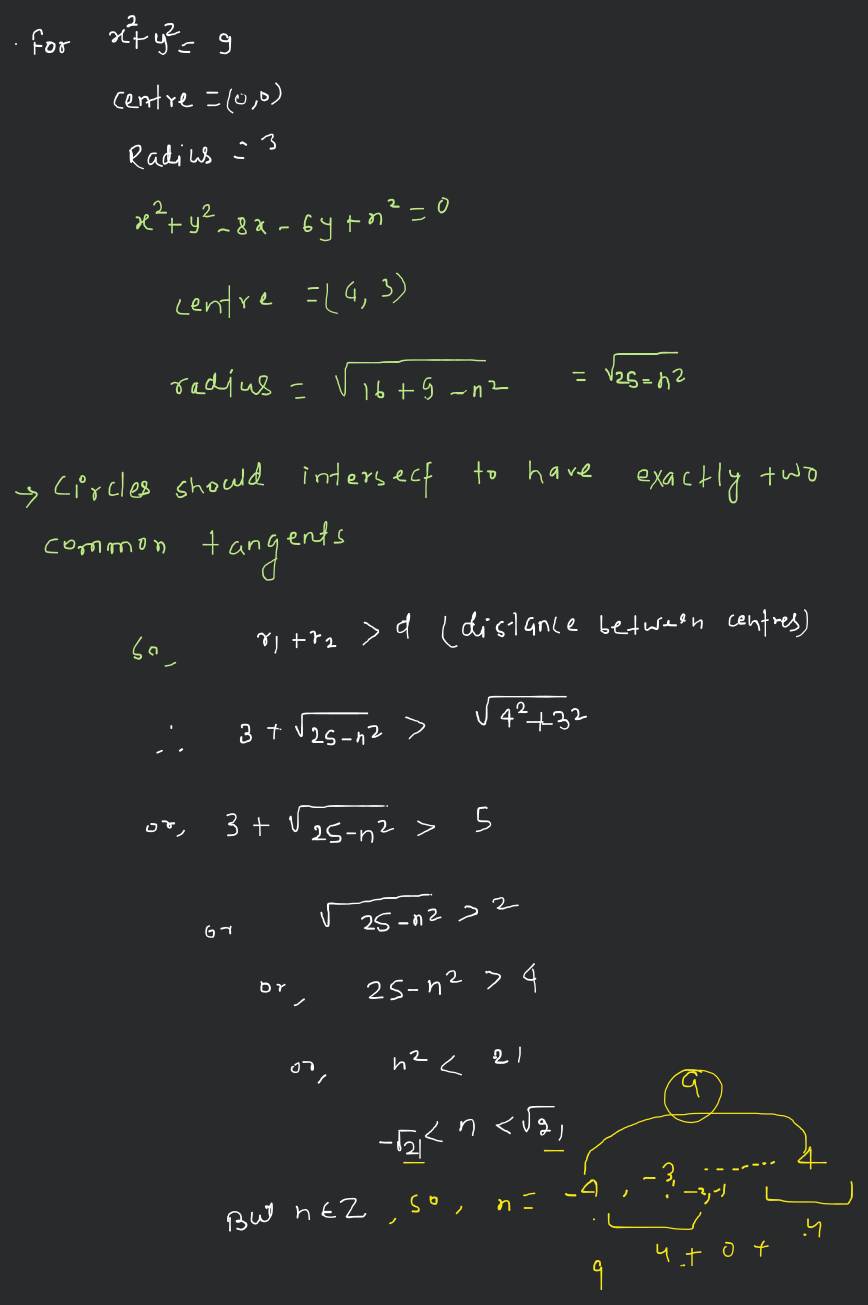 . for x²+y²= 9
centre =(0,0)
Radius = 3
x²+y²-8x-6y+n²=0
centre =(4, 3)
radius = √16+9-n² = √25-n²
→ Circles should intersect to have exactly two
common tangents
So, r₁+r₂ > d (distance between centres)
∴ 3 + √25-n² > √4²+3²
or, 3 + √25-n² > 5
or √25-n² > 2
or, 25-n² > 4
or, n² < 21
9
-√21 < n < √21
But n∈Z, so, n = -4, -3, -2,-1 ....... 4
4 + 0 + 4
9